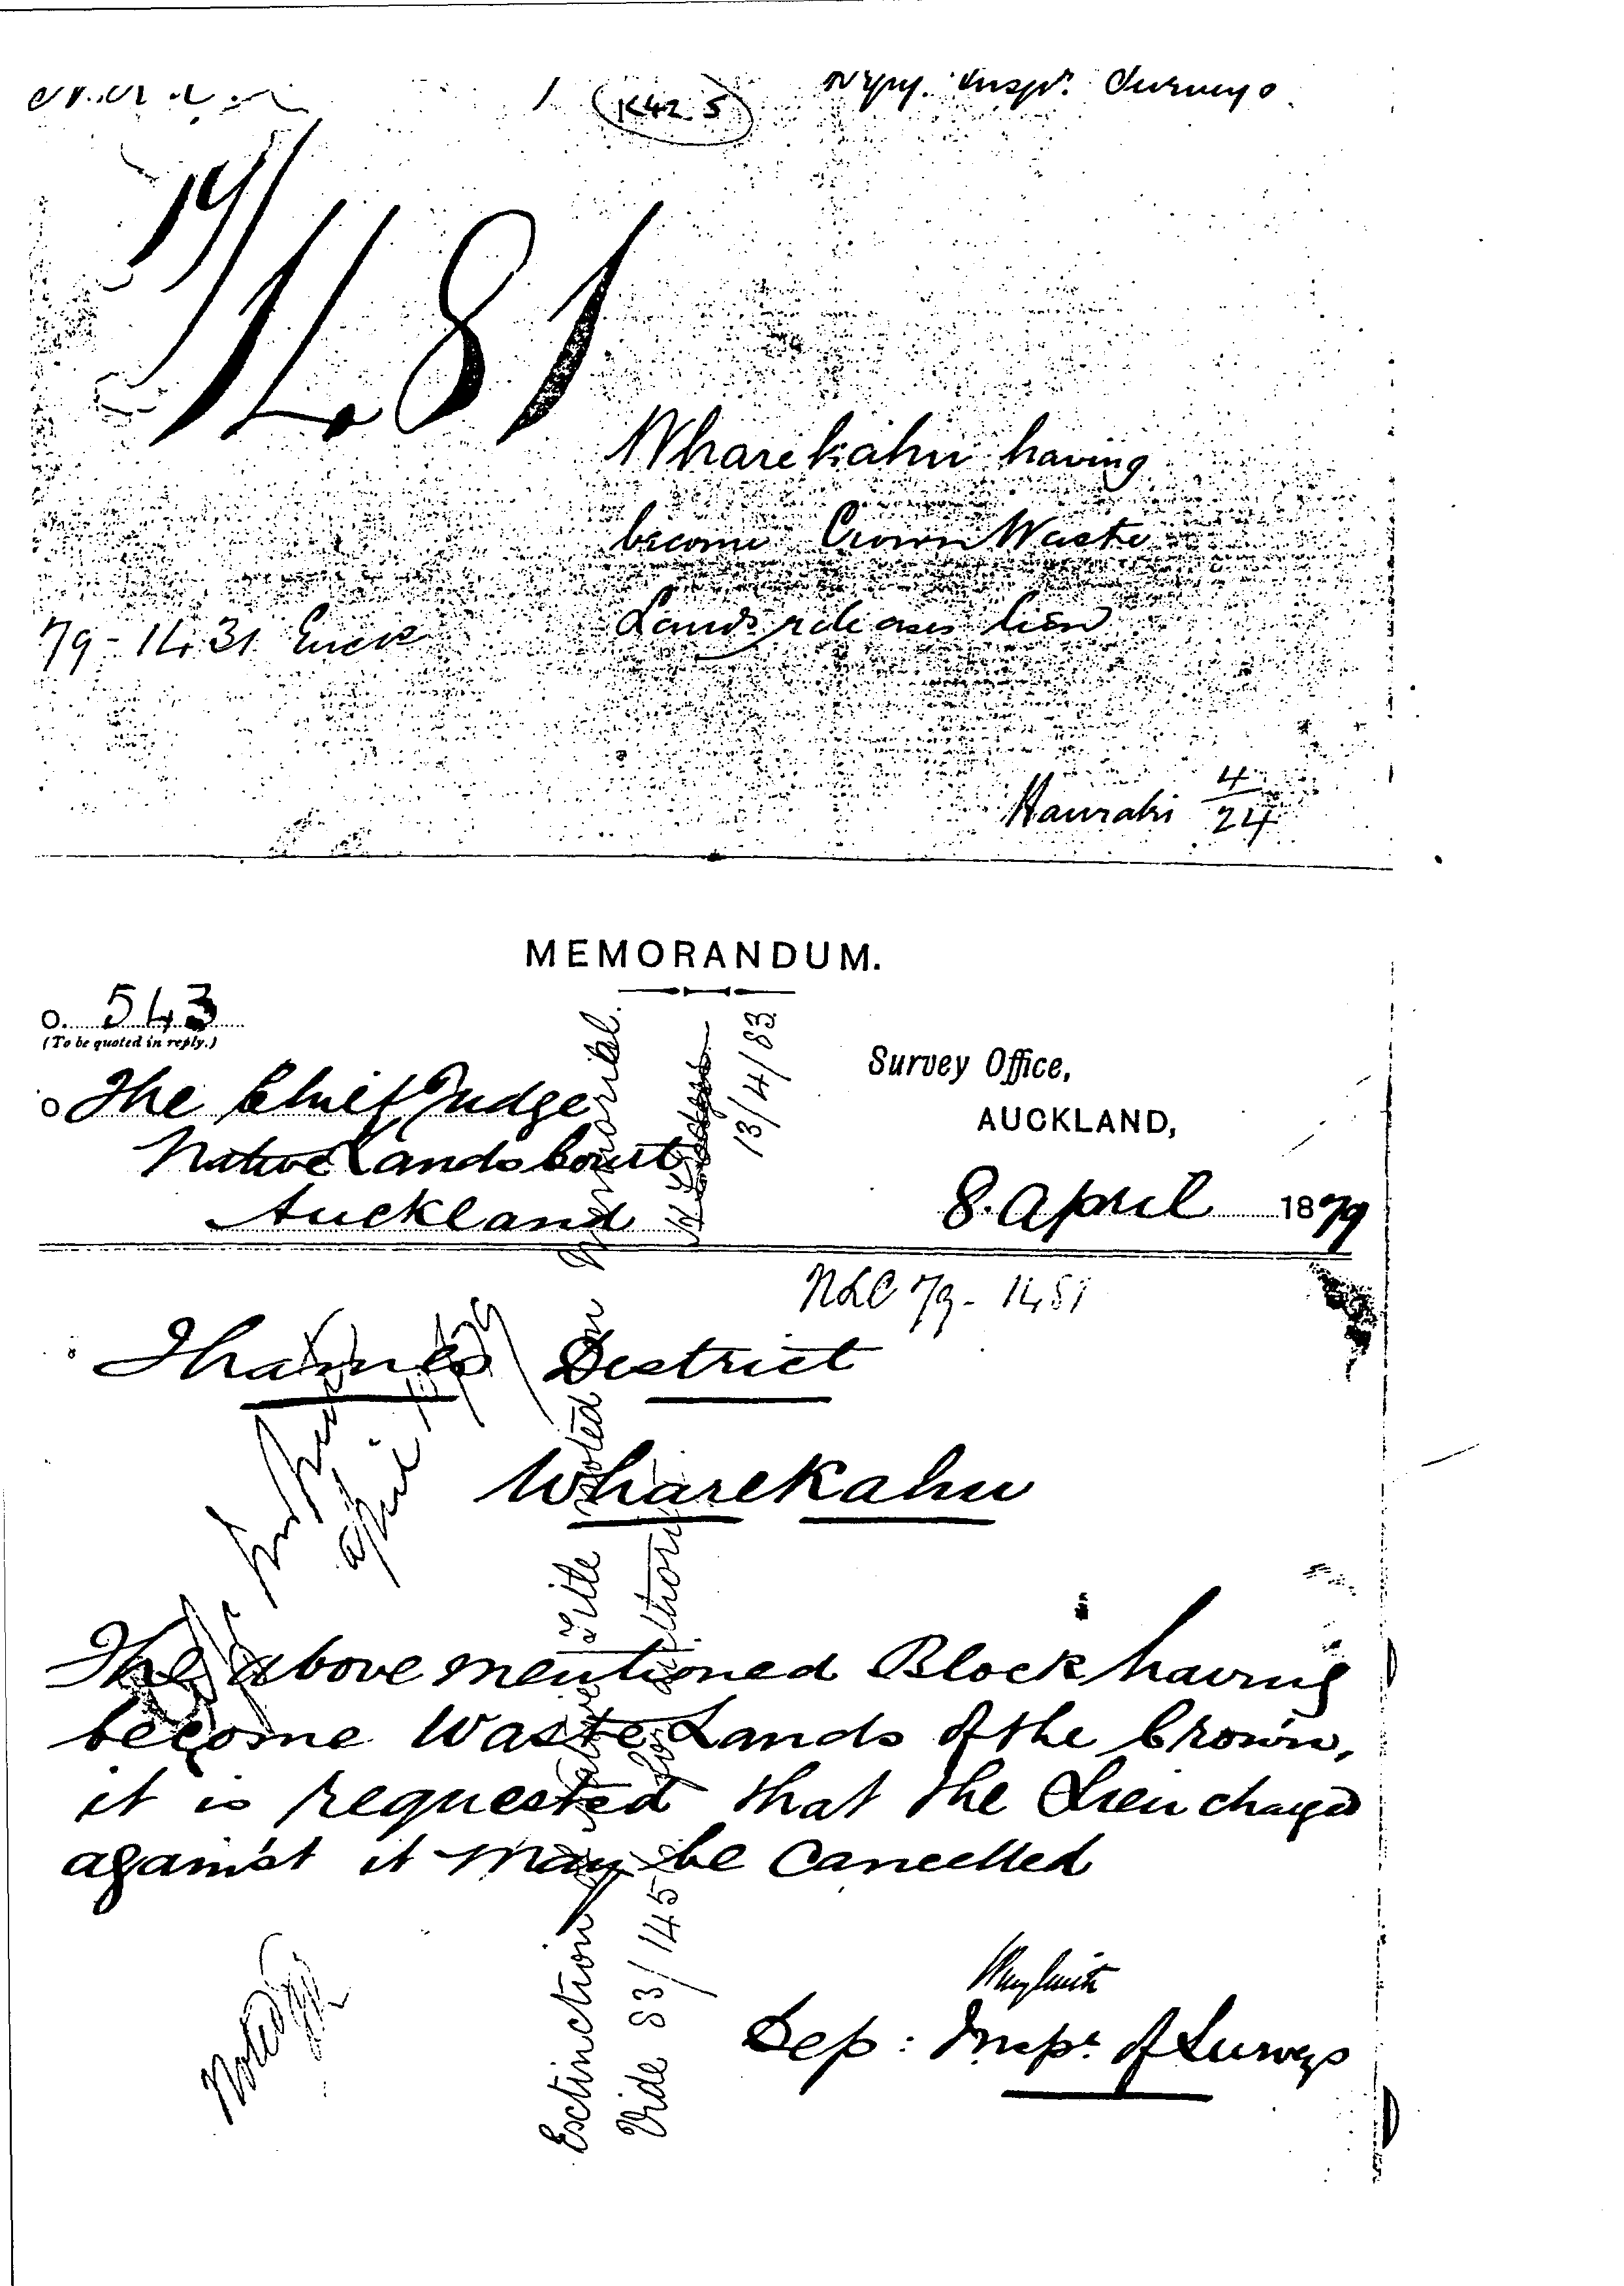 K42 S
Depy. Inspr. Surveys
79/1481
Wharekahu having
become Crown Waste
Lands releases lien
79-1431 Encl
Hauraki 4/24
MEMORANDUM.
o. 543
(To be quoted in reply.)
o The Chief Judge
Native Lands Court
Auckland
Survey Office,
AUCKLAND,
8. April 1879
NLC 79-1481
Thames District
Wharekahu
The above mentioned Block having
become Waste Lands of the Crown,
it is requested that the Lien charged
against it may be Cancelled
Dep: Inspr. of Surveys
Noted
April
Extinction Native Title noted on Memorial.
Vide 83/145 for authority
13/4/83